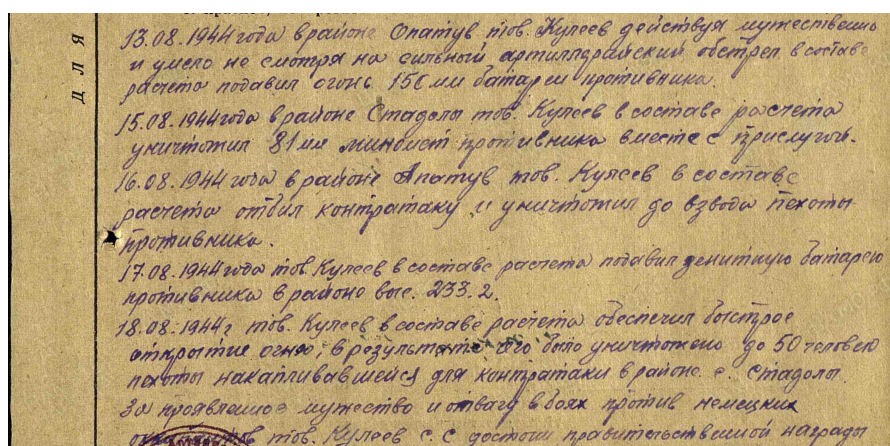 ДЛЯ
13.08.1944 года в районе Опатув тов. Кулеев действуя мужественно
и умело не смотря на сильный артиллерийский обстрел в составе
расчета подавил огонь 150 мм батареи противника.
15.08.1944 года в районе Стадолы тов. Кулеев в составе расчета
уничтожил 81 мм минбат противника вместе с прислугой.
16.08.1944 года в районе Апатув тов. Кулеев в составе
расчета отбил контратаку и уничтожил до взвода пехоты
противника.
17.08.1944 года тов. Кулеев в составе расчета подавил зенитную батарею
противника в районе выс. 233.2.
18.08.1944 г тов. Кулеев в составе расчета обеспечил быстрое
открытие огня, в результате его было уничтожено до 50 человек
пехоты накапливавшейся для контратаки в районе с. Стадолы.
За проявленное мужество и отвагу в боях против немецких
тов. Кулеев С.С достоин правительственной награды